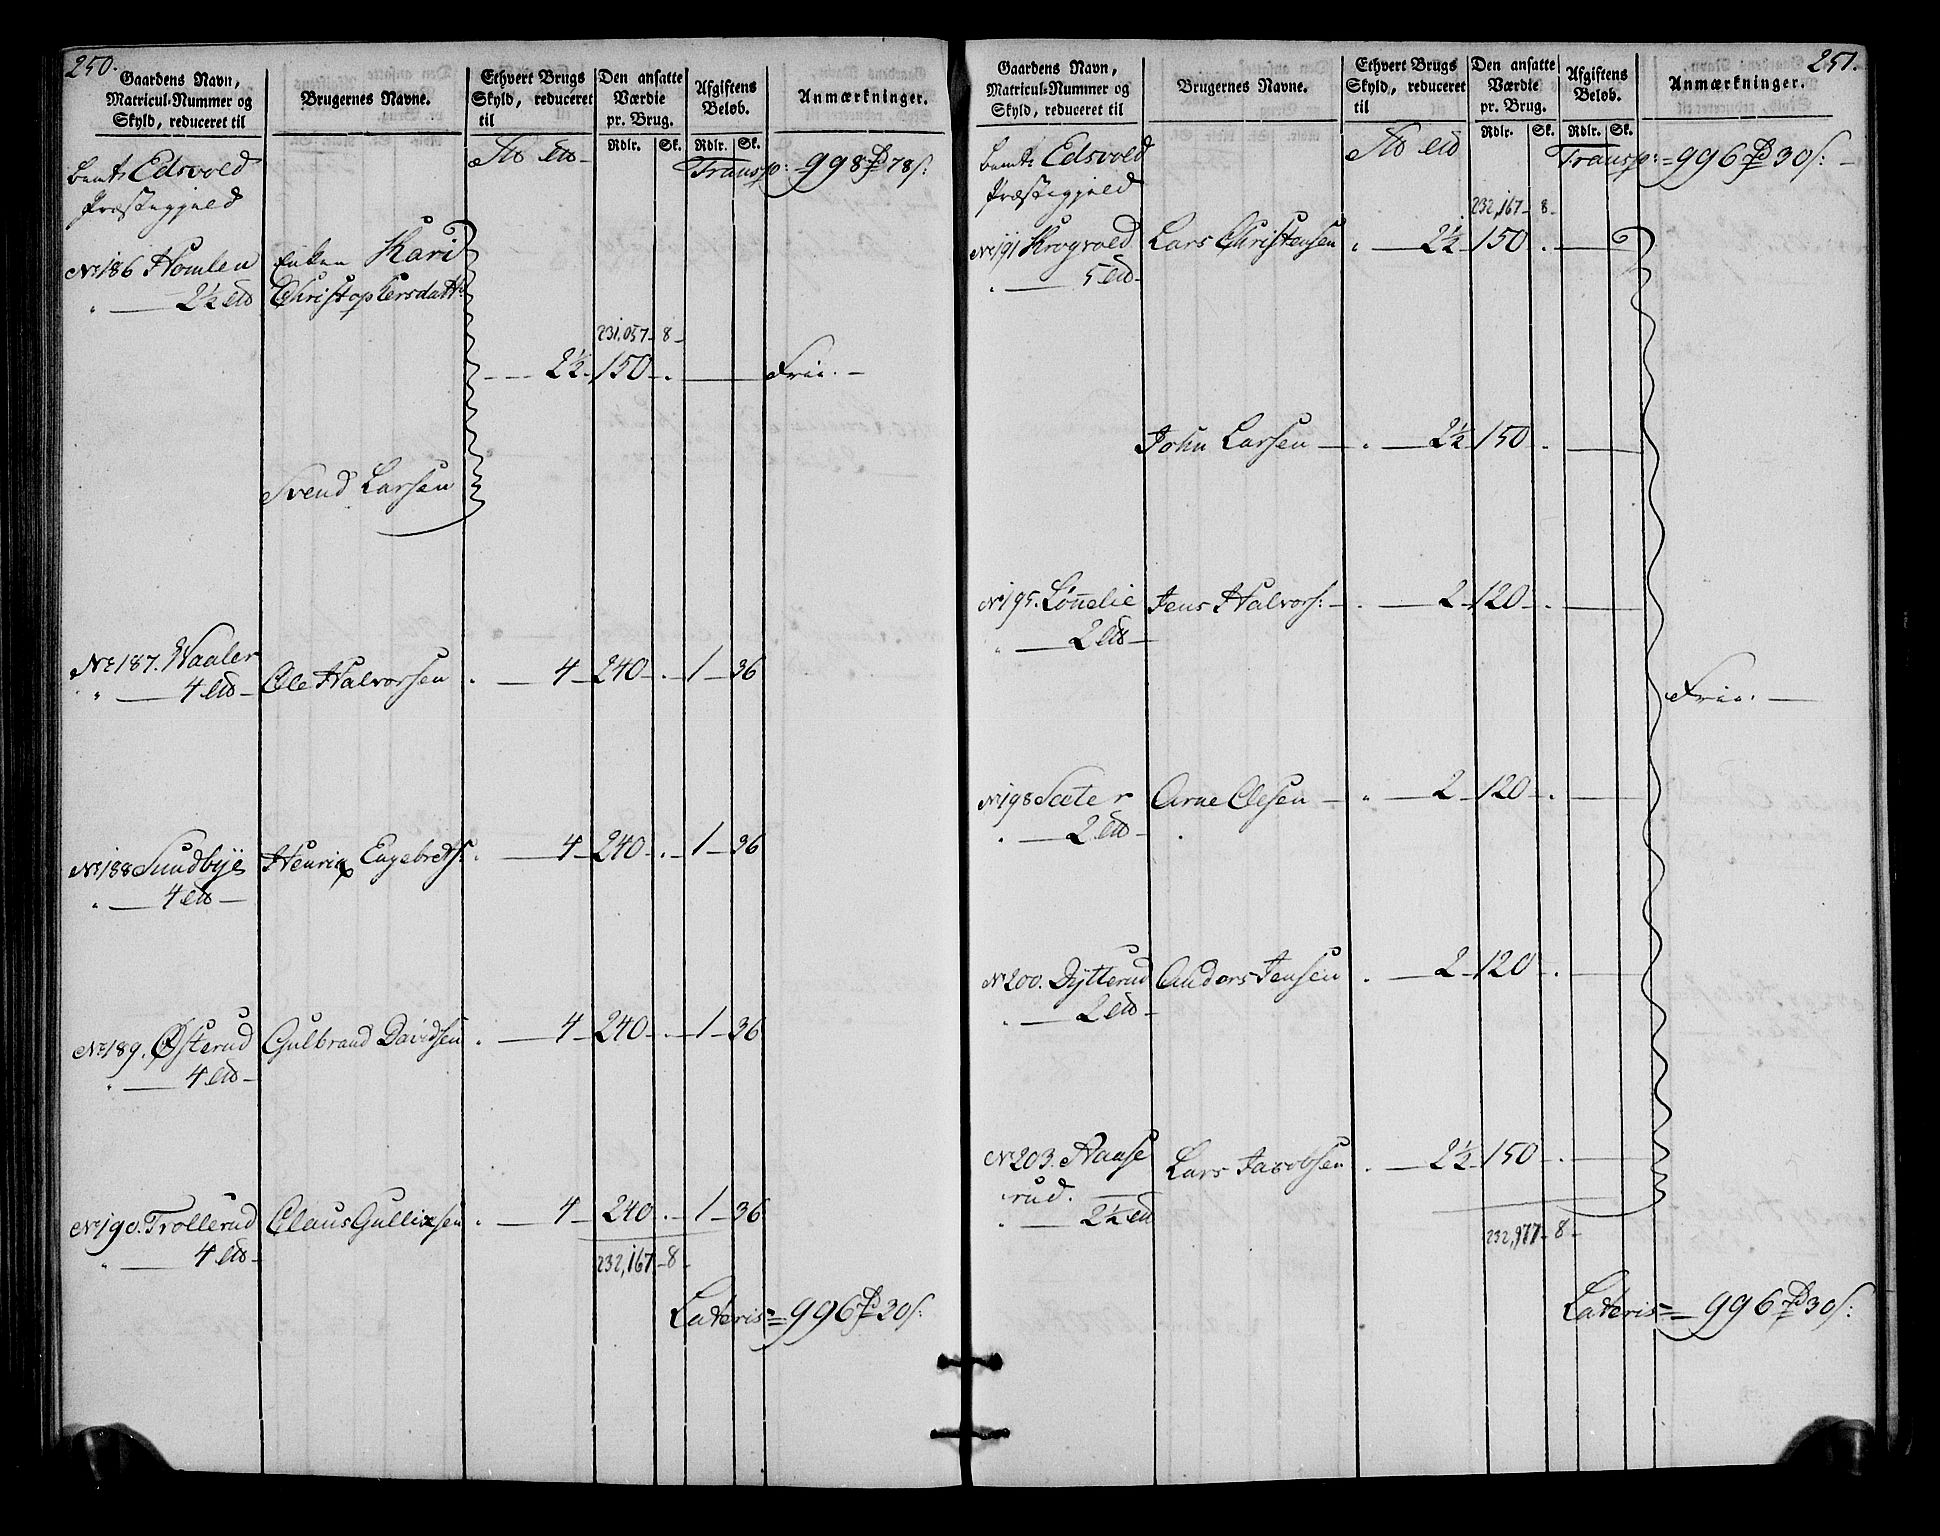 250.
Gaardens Navn,
Matricul-Nummer og
Skyld, reduceret til
Brugernes Navne.
Ethvert Brugs
Skyld, reduceret
til
Den ansatte
Værdie
pr. Brug.
Rdlr. Sk.
Afgiftens
Beløb.
Rdlr. Sk.
Anmærkninger.
Edsvold
Præstegjeld
Transp: 998 78 s:
No 186 Homlen Enken Kari
2½ Christophersdatt:
231,057 - 8 -
2½ - 150 - . Frie. -
Svend Larsen
No 187. Waaler
4 Ole Halvorsen . 4 - 240 - . 1 - 36
No 188 Sundbye Henrix Engebreths: . 4 - 240 - . 1 - 36
4
No 189. Østerud Gulbrand Davidsen . 4 - 240 - . 1 - 36
4
No 190. Trollerud Claus Gullixsen . 4 - 240 . 1 - 36
4
232,167 - 8 -
Lateris = 996 30 s:
251.
Gaardens Navn,
Matricul-Nummer og
Skyld, reduceret til
Brugernes Navne.
Ethvert Brugs
Skyld, reduceret
til
Den ansatte
Værdie
pr. Brug.
Rdlr. Sk.
Afgiftens
Beløb.
Rdlr. Sk.
Anmærkninger.
Edsvold
Præstegjeld
Transp: = 996 30 s: -
232,167 - 8 -
No 191 Krogvold Lars Christensen . 2½ - 150 .
5
John Larsen - . 2½ - 150 .
No 195. Lönnelie Jens Halvors: - . 2 - 120 - .
2
Frie. -
No 198 Sæter Arne Olesen - 2 - 120 - .
2
No 200. Dytterud Anders Jensen . 2 - 120 - .
2
No 203. Haase
rud. Lars Jacobsen . 2½ - 150 - .
2½
232,977 - 8 -
Lateris = 996 30 s: